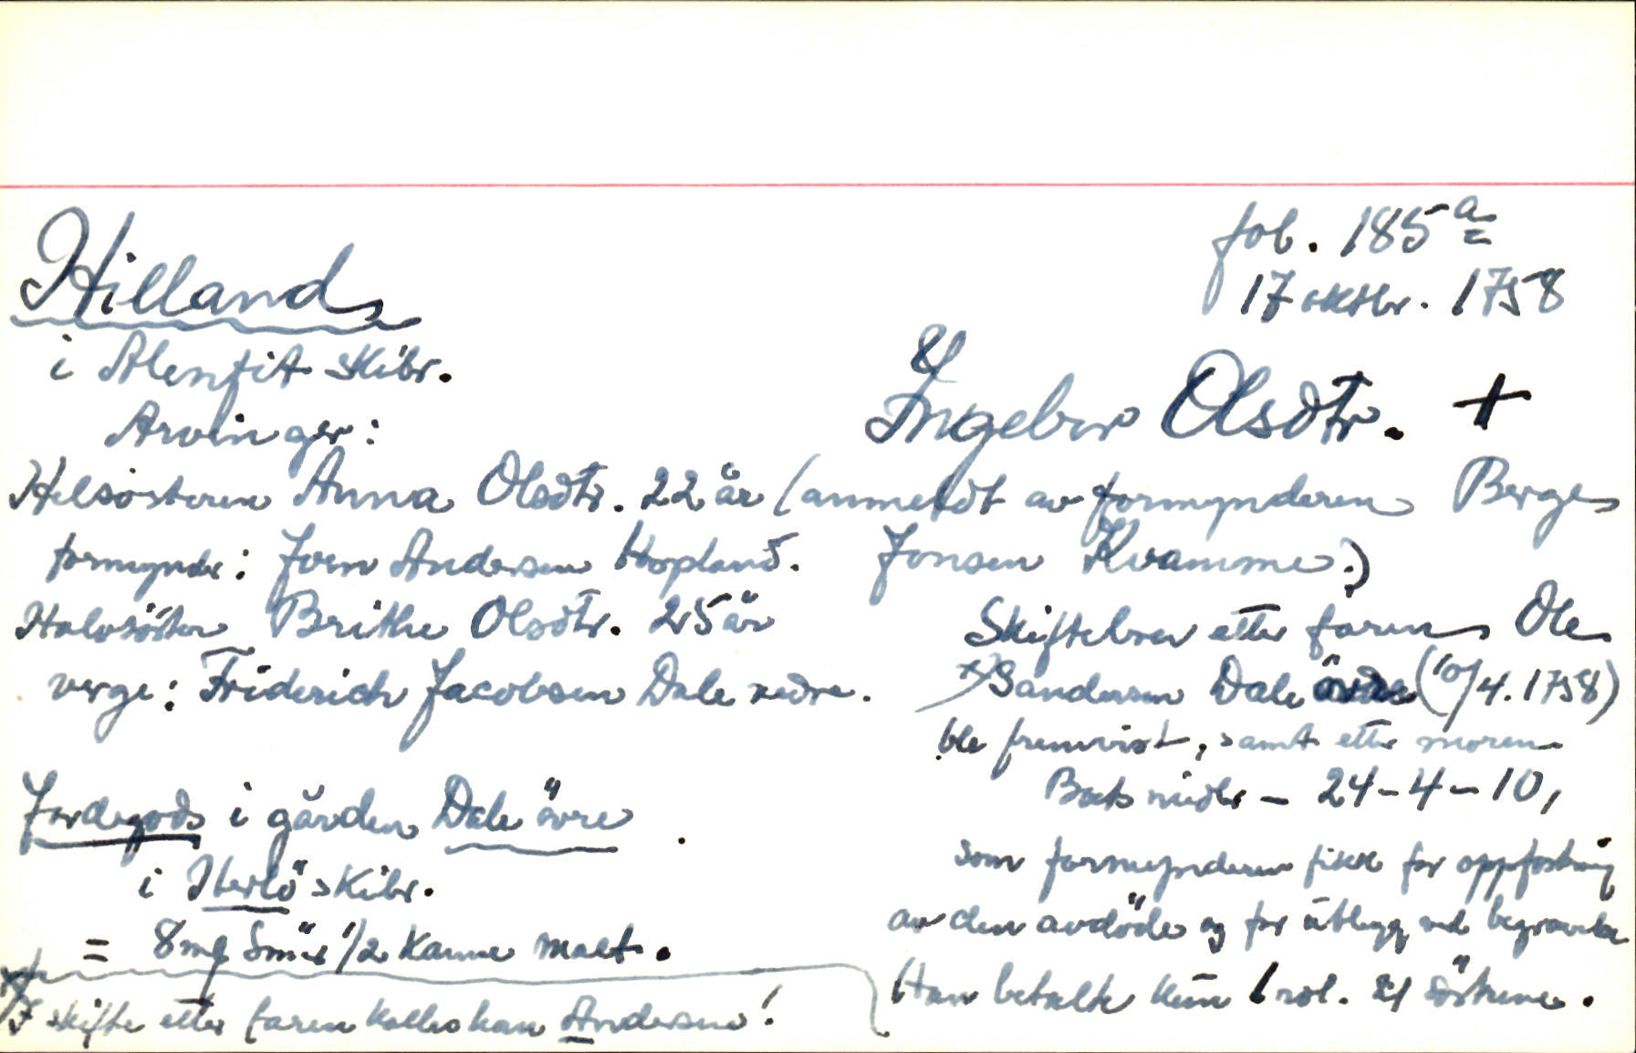 fol. 185 a
17 oktbr. 1758
Hilland
i Alenfit skibr.
Ingebor Olsdtr. +
Arvinger:
Helsösteren Anna Olsdtr. 22 år (anmeldt av formynderen Berge
formynder: Jorn Andersen Hopland. Jonsen Kvamme.)
Halvsöster Brithe Olsdtr. 25 år
verge: Friderich Jacobsen Dale nedre.
Skiftebrev etter faren Ole
x) Sandersen Dale övre (10/4. 1758)
ble fremvist, samt etter moren
Boets midler - 24-4-10,
som formynderen fikk for oppfostring
av den avdöde og for utlegg ved begravelse
Han betalte kun 1 rdl. til söstrene.
Jordegods i gården Dale övre
i Herlö skibr.
= 8 mg Smör 1/2 Kanne malt.
x) I skifte etter faren kalles han Andersen!